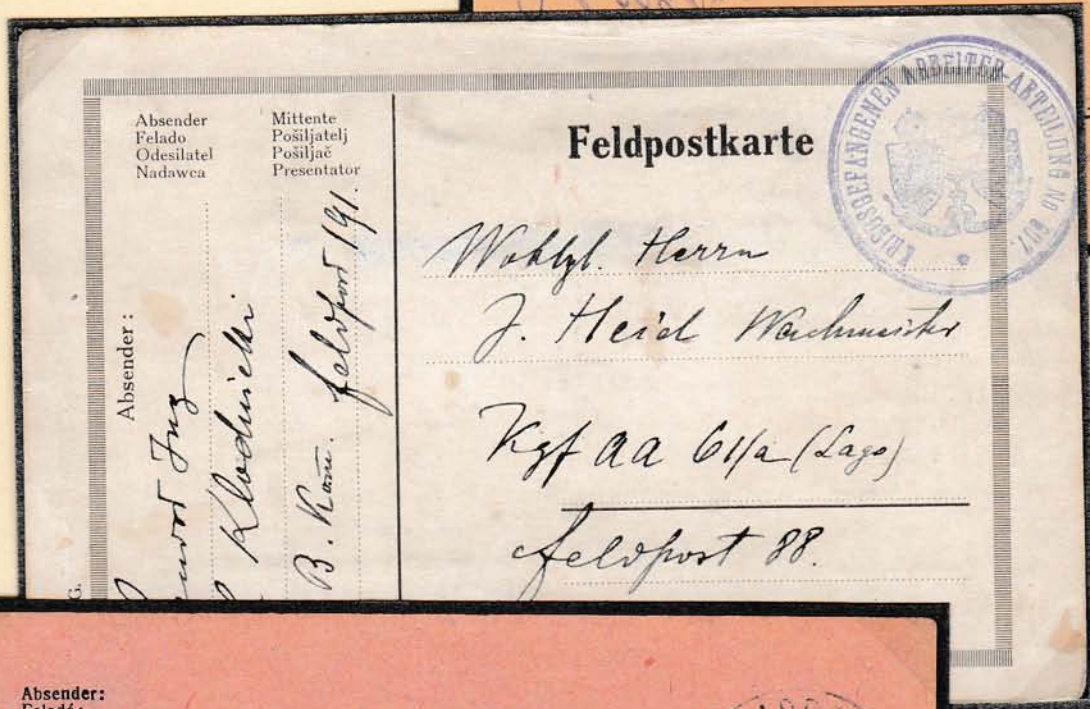 Absender
Felado
Odesilatel
Nadawca
Mittente
Pošiljatelj
Pošiljač
Presentator
Absender:
Klodnicki
B. Kom. Feldpost 191.
Feldpostkarte
KRIEGSGEFANGENEN ARBEITER-ABTEILUNG No
Wohlgb. Herrn
J. Heid Wachmeister
Kgf AA 611/a (Lago)
Feldpost 88.
G.
Absender:
Feladó: